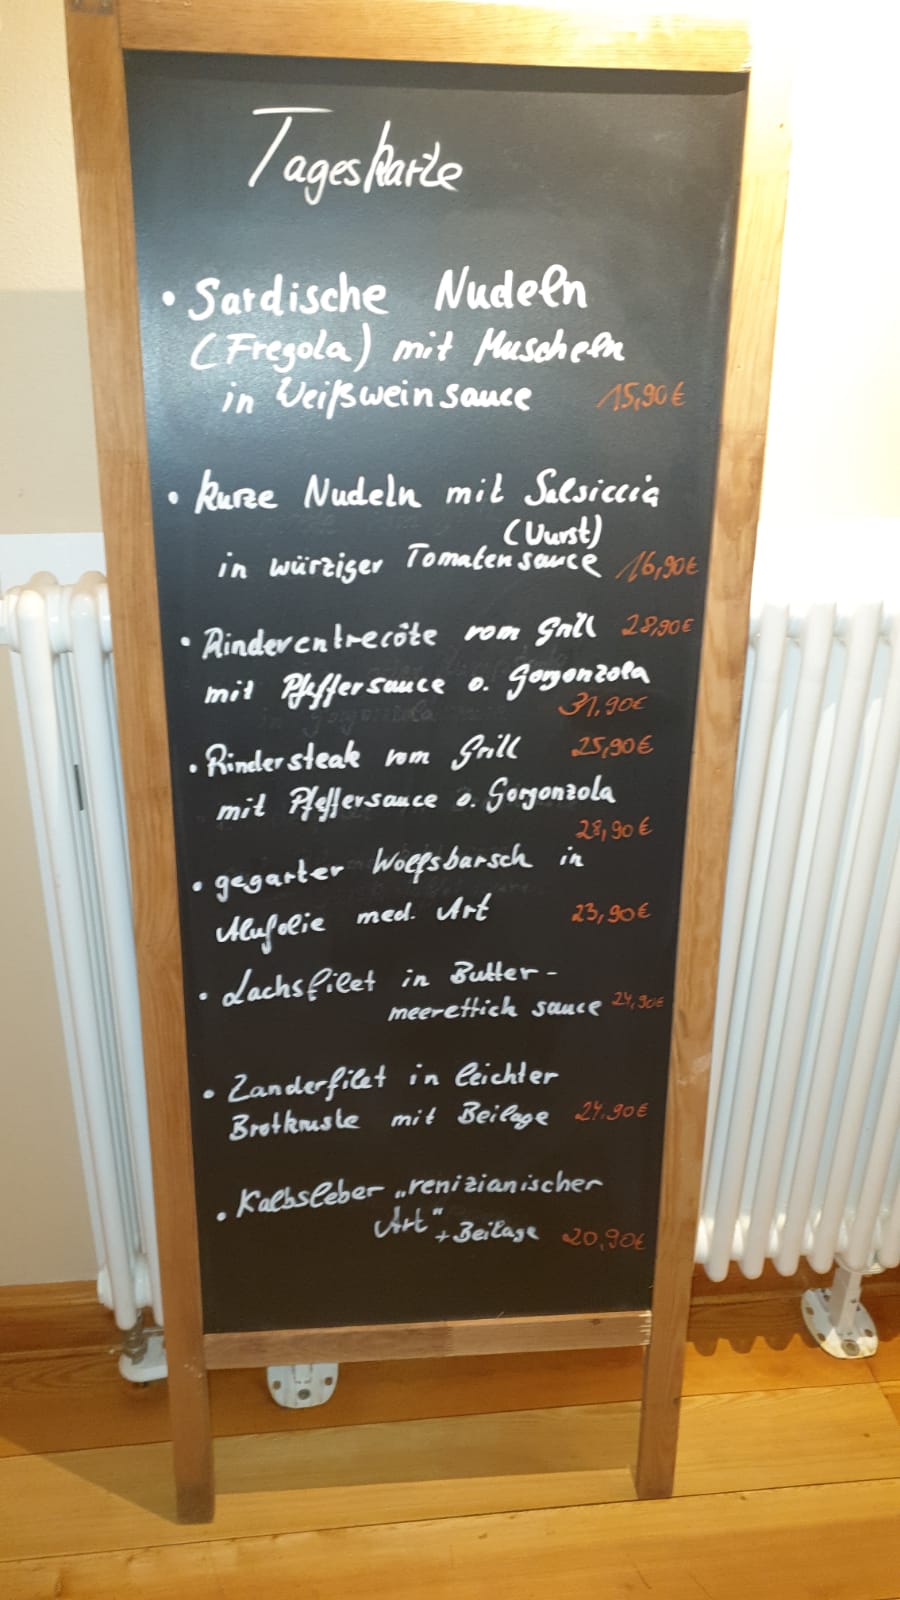 Tageskarte
• Sardische Nudeln
(Fregola) mit Muscheln
in Weißweinsauce 15,90€
• kurze Nudeln mit Salsiccia
(Wurst)
in würziger Tomatensauce 16,90€
• Rinderentrecôte vom Grill 28,90€
mit Pfeffersauce o. Gorgonzola
31,90€
• Rindersteak vom Grill 25,90€
mit Pfeffersauce o. Gorgonzola
28,90€
• gegarter Wolfsbarsch in
Alufolie med. Art 23,90€
• Lachsfilet in Butter-
meerettich sauce 24,90€
• Zanderfilet in leichter
Brotkruste mit Beilage 24.90€
• Kalbsleber „venizianischer
Art" + Beilage 20,90€